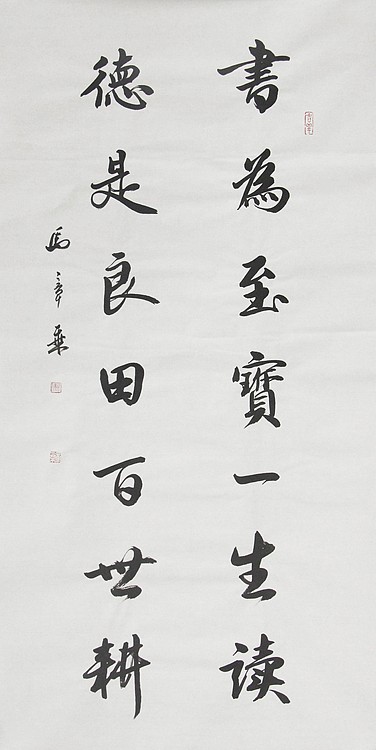 書為至寶一生读
德是良田百世耕
馬章乘